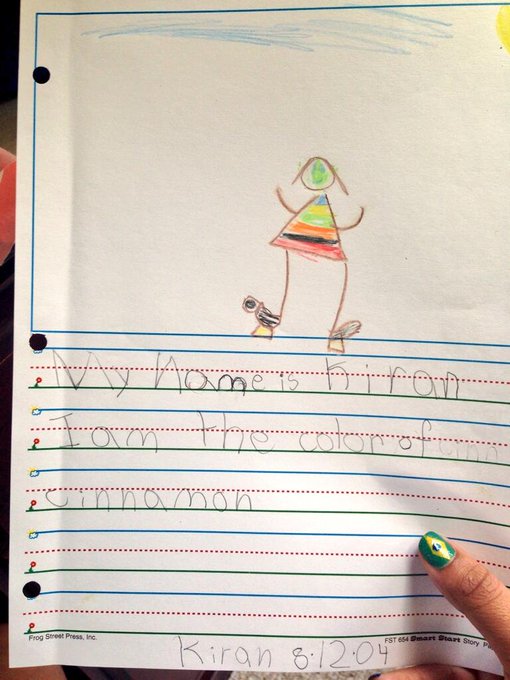 My Name is Kiran
I am the color of cinn
cinnamon
Frog Street Press, Inc.
FST 654 Smart Start Story
Kiran 8.12.04